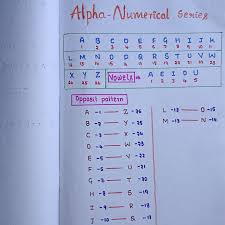 Alpha-Numerical Series
A B C D E F G H I J K
1 2 3 4 5 6 7 8 9 10 11
L M N O P Q R S T U V W
12 13 14 15 16 17 18 19 20 21 22 23
X Y Z
24 25 26
Vowels = A E I O U
1 2 3 4 5
Opposit pattern
A -1 — Z -26 L -12 — O -15
B -2 — Y -25 M -13 — N -14
C -3 — X -24
D -4 — W -23
E -5 — V -22
F -6 — U -21
G -7 — T -20
H -8 — S -19
I -9 — R -18
J -10 — Q -17